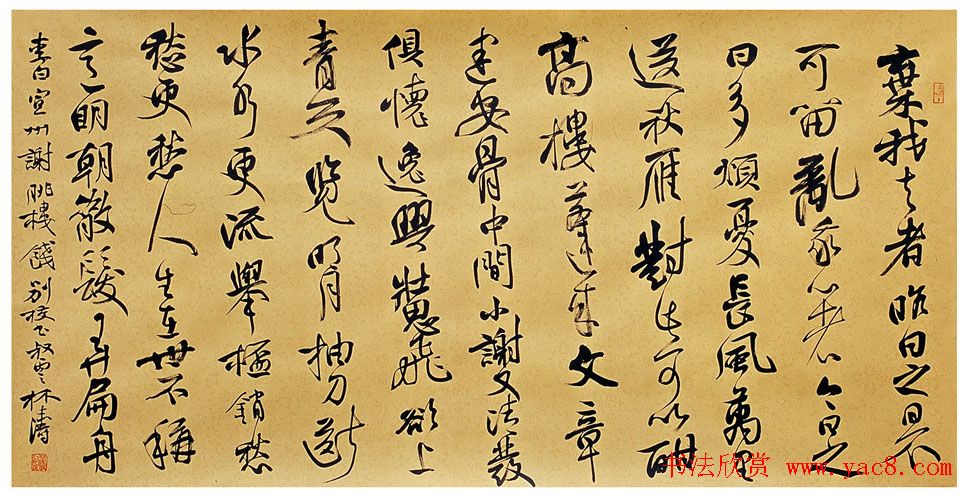 棄我去者昨日之日不
可留亂我心者今日之
日多煩憂長風萬里
送秋雁對此可以酣
高樓蓬萊文章
建安骨中間小謝又清發
俱懷逸興壯思飛欲上
青天覽明月抽刀斷
水水更流舉杯銷愁
愁更愁人生在世不稱
意明朝散髮弄扁舟
李白宣州謝朓樓餞別校書叔雲 林濤
书法欣赏 www.yac8.com